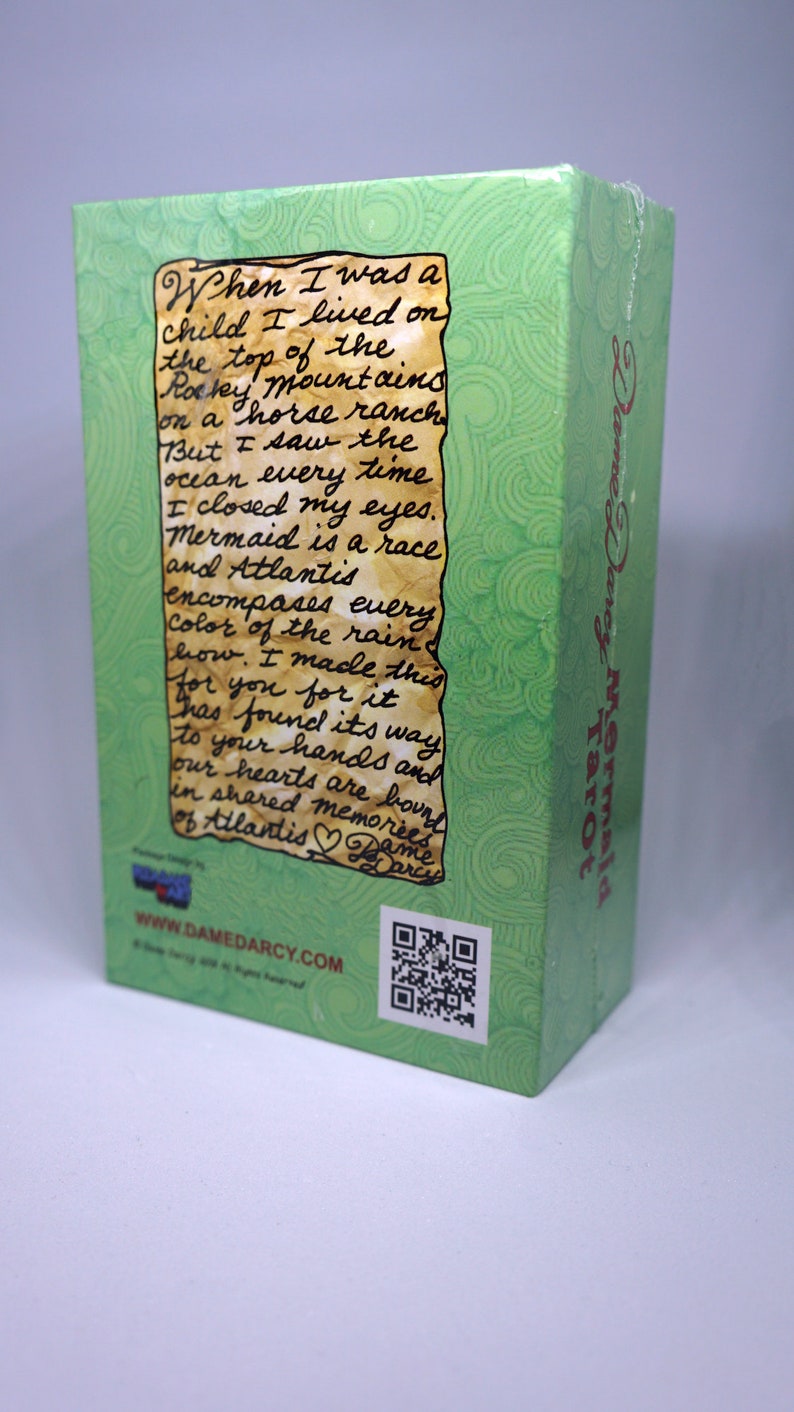 When I was a
child I lived on
the top of the
Rocky Mountains
on a horse ranch.
But I saw the
ocean every time
I closed my eyes.
Mermaid is a race
and Atlantis
encompases every
color of the rain
bow. I made this
for you for it
has found its way
to your hands and
our hearts are bound
in shared memories
of Atlantis ♡ Dame
Darcy
Package Design by
WWW.DAMEDARCY.COM
© Dame Darcy All Rights Reserved
Dame Darcy Mermaid
Tarot